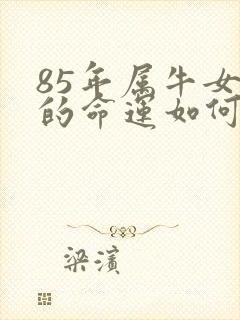 85年属牛女
的命运如何
梁滨